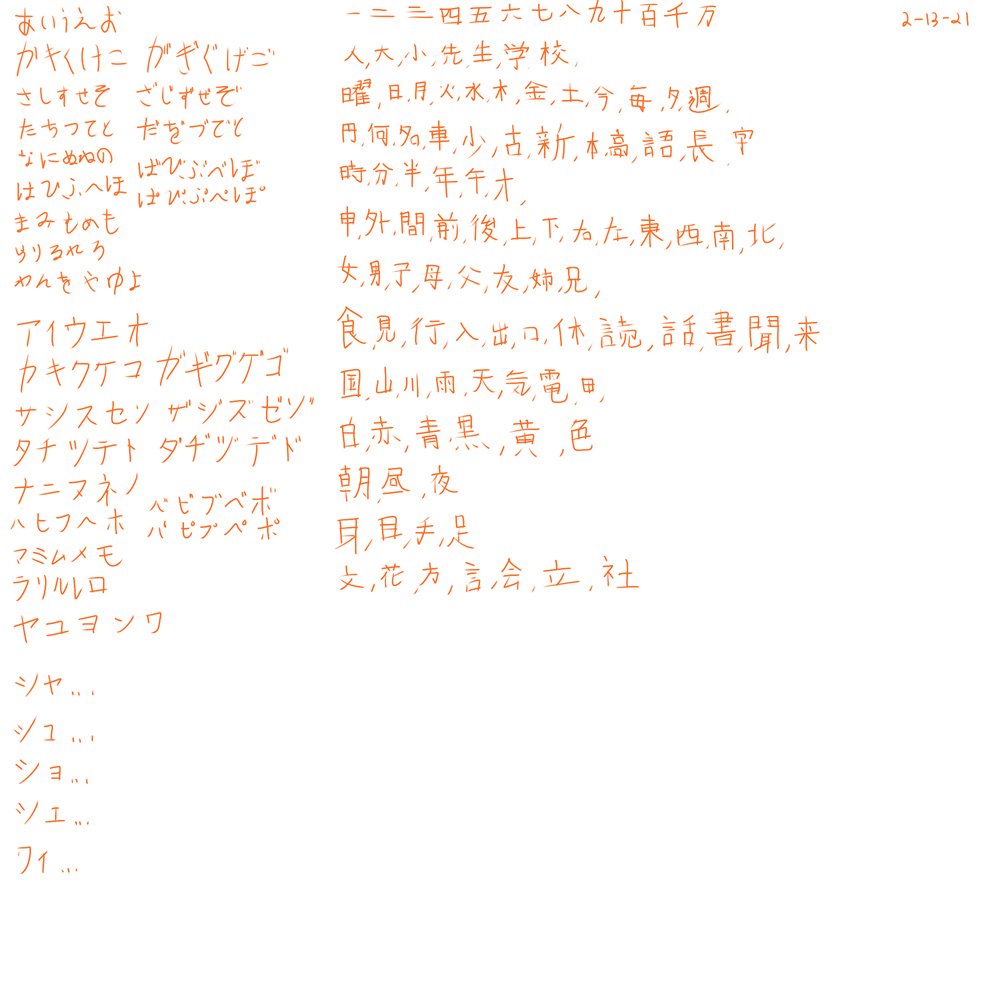 あいうえお
かきくけこ がぎぐげご
さしすせそ ざじずぜぞ
たちつてと だぢづでど
なにぬねの
はひふへほ ばびぶべぼ
ぱぴぷぺぽ
まみむめも
らりるれろ
わんをやゆよ
アイウエオ
カキクケコ ガギグゲゴ
サシスセソ ザジズゼゾ
タチツテト ダヂヅデド
ナニヌネノ
ハヒフヘホ バビブベボ
パピプペポ
マミムメモ
ラリルレロ
ヤユヨンワ
シャ...
シュ...
ショ...
シェ...
ワィ...
一二三四五六七八九十百千万
人,大,小,先,生,学,校,
曜,日,月,火,水,木,金,土,今,毎,夕,週,
円,何,名,車,少,古,新,本,高,語,長,字
時,分,半,年,午,才,
中,外,間,前,後,上,下,右,左,東,西,南,北,
女,男,子,母,父,友,姉,兄,
食,見,行,入,出,口,休,読,話,書,聞,来
国,山,川,雨,天,気,電,田,
白,赤,青,黒,黄,色
朝,昼,夜
耳,目,手,足
文,花,方,言,会,立,社
2-13-21